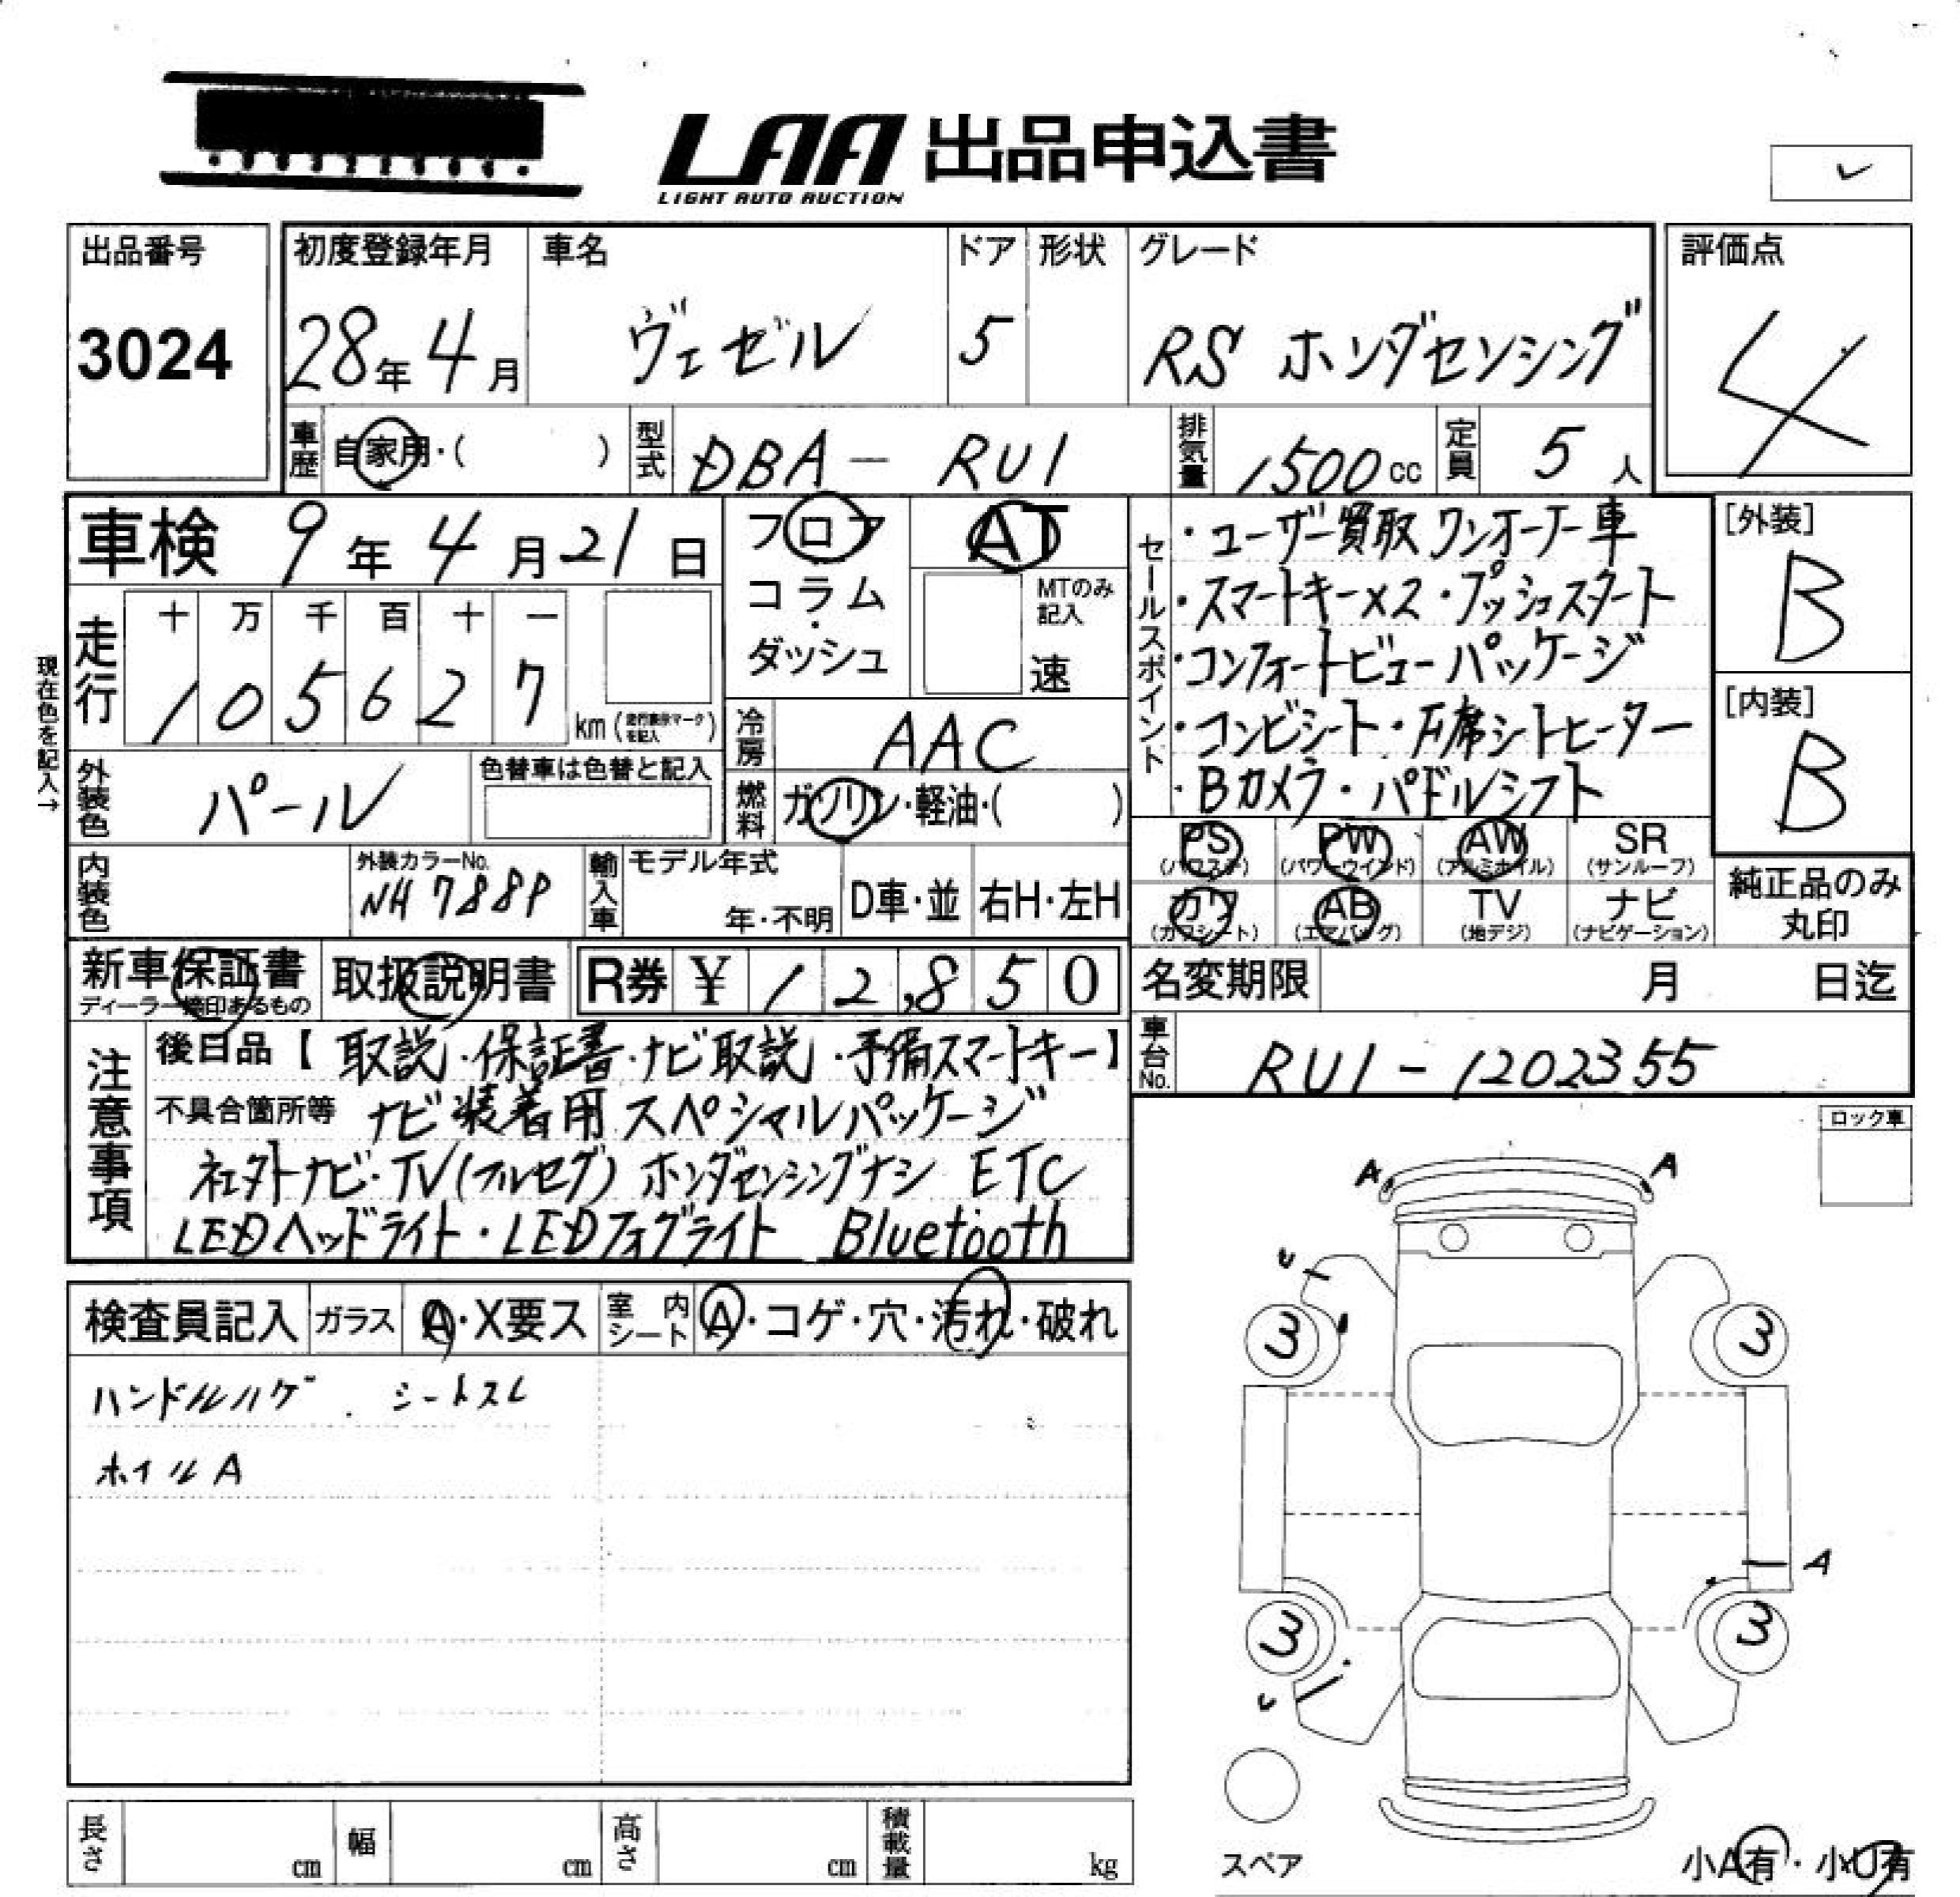 LAA 出品申込書
LIGHT AUTO AUCTION
出品番号
3024
初度登録年月 車名 ドア 形状 グレード 評価点
28年 4月 ヴェゼル 5 RS ホンダセンシング 4
車歴 自家用・( ) 型式 DBA- RU1 排気量 1500cc 定員 5人
車検 9年 4月 21日
フロア
コラム
・
ダッシュ
AT
MTのみ
記入
速
セールスポイント
・ユーザー買取 ワンオーナー車
・スマートキー×2・プッシュスタート
・コンフォートビューパッケージ
・コンビシート・左席シートヒーター
・Bカメラ・パドルシフト
[外装]
B
[内装]
B
現在色を記入→
走行 十 万 千 百 十 一
1 0 5 6 2 7 km
冷房 AAC
外装色 パール 色替車は色替と記入
燃料 ガソリン・軽油・( )
PS PW AW SR
(パワステ) (パワーウインド) (アルミホイル) (サンルーフ)
カワ AB TV ナビ
(カワシート) (エアバッグ) (地デジ) (ナビゲーション)
純正品のみ
丸印
内装色 外装カラーNo. NH788P
輸入車 モデル年式 年・不明 D車・並 右H・左H
新車保証書 取扱説明書 R券 ¥ 12,850
ディーラー捺印あるもの
名変期限 月 日迄
車台No. RU1-1202355
注意事項
後日品【取説・保証書・ナビ取説・予備スマートキー】
不具合箇所等 ナビ装着用スペシャルパッケージ
社外ナビ・TV(フルセグ) ホンダセンシングナシ ETC
LEDヘッドライト・LEDフォグライト Bluetooth
ロック車
A A
検査員記入 ガラス A・X要ス 室内シート A・コゲ・穴・汚れ・破れ
ハンドルハゲ . シートスレ
ホイルA
3 3
A
3 3
スペア
長さ cm 幅 cm 高さ cm 積載量 kg
小A有・小U有